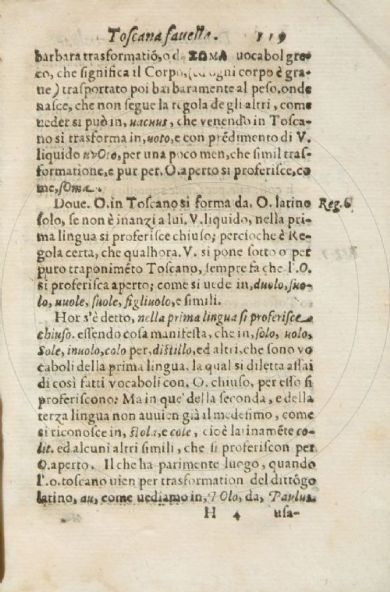 Toscana fauella. 119
barbara trasformatiō, o da ΣΩΜΑ vocabol gre-
co, che significa il Corpo, (ed ogni corpo è gra-
ue) trasportato poi barbaramente al peso. onde
nasce, che non segue la regola de gli altri, come
ueder si può in, uacuus, che venendo in Tosca-
no si trasforma in, uoto, e con prēdimento di V.
liquido uVOto, per una poco men, che simil tras-
formatione, e pur per. O. aperto si proferisce, co
me, sOma.
Doue. O. in Toscano si forma da. O. latino Reg. 6.
solo, se non è inanzi a lui. V. liquido, nella pri
ma lingua si proferisce chiuso; percioche è Re-
gola certa, che qualhora. V. si pone sotto o per
puro traponimēto Toscano, sempre fa che l'. O.
si proferisca aperto; come si uede in, duolo, suo-
lo, uuole, suole, figliuolo, e simili.
Hor s'è detto, nella prima lingua si proferisce
chiuso. essendo cosa manifesta, che in, solo, uolo,
Sole, inuolo, colo per, distillo, ed altri. che sono vo
caboli della prima lingua. la qual si diletta assai
di così fatti vocaboli con. O. chiuso, per esso si
proferiscono: Ma in que' della seconda, e della
terza lingua non auuien già il medesimo, come
si riconosce in, stola, e cole, cioè latinamēte co-
lit. ed alcuni altri simili, che si proferiscon per
O. aperto. Il che ha parimente luogo, quando
l'. o. toscano uien per trasformation del dittōgo
latino, au, come uediamo in, POlo, da, Paulus.
H 4 usa-